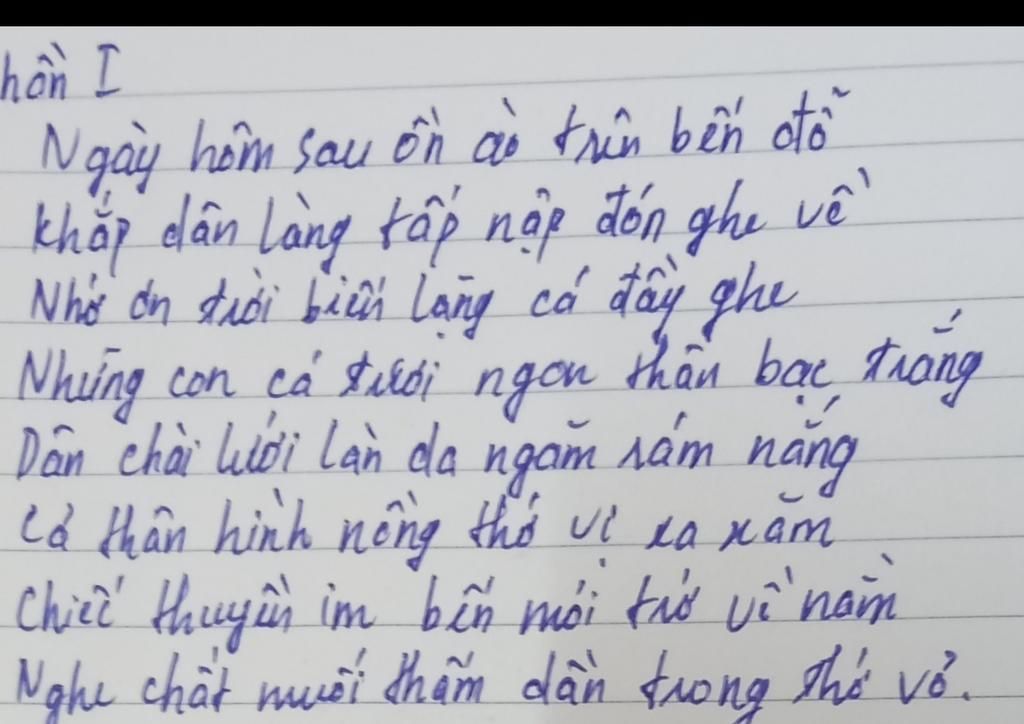 hần I
Ngày hôm sau ồn ào trên bến đỗ
Khắp dân làng tấp nập đón ghe về
Nhờ ơn trời biển lặng cá đầy ghe
Những con cá tươi ngon thân bạc trắng
Dân chài lưới làn da ngăm rám nắng
Cả thân hình nồng thở vị xa xăm
Chiếc thuyền im bến mỏi trở về nằm
Nghe chất muối thấm dần trong thớ vỏ.